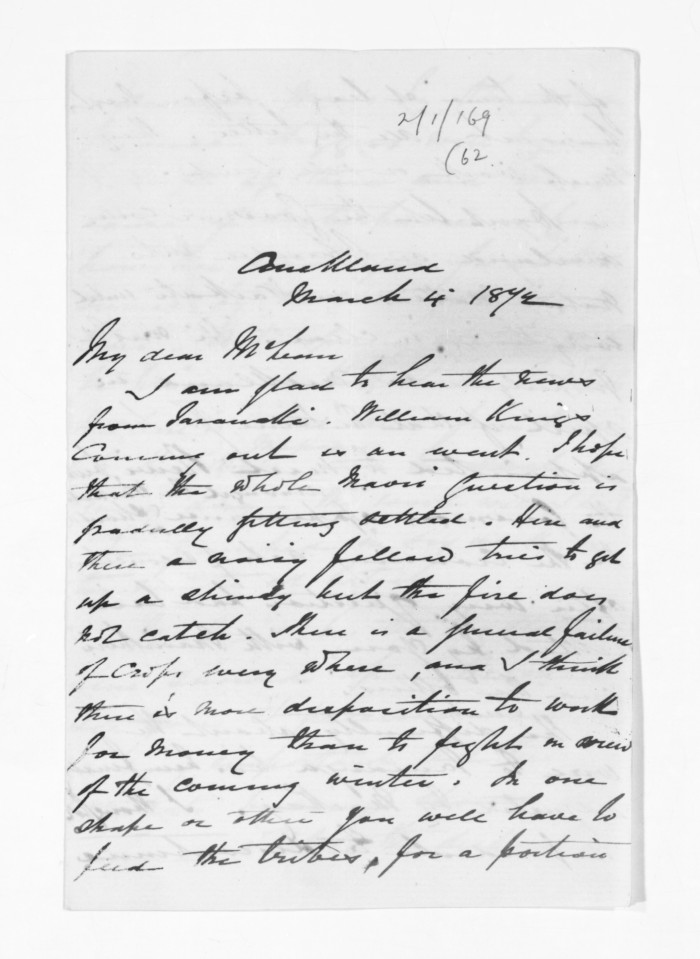 2/1/169
(62.
Auckland
March 4 1872
My dear McLean
I am glad to hear the news
from Taranaki. William Kings
Coming out is an event. I hope
that the whole Maori question is
gradually getting settled. Here and
there a noisy fellow tries to get
up a shindy but the fire does
not catch. There is a general failure
of crops every where, and I think
there is more disposition to work
for money than to fight in view
of the coming winter. In one
shape or other you will have to
feed the tribes, for a portion